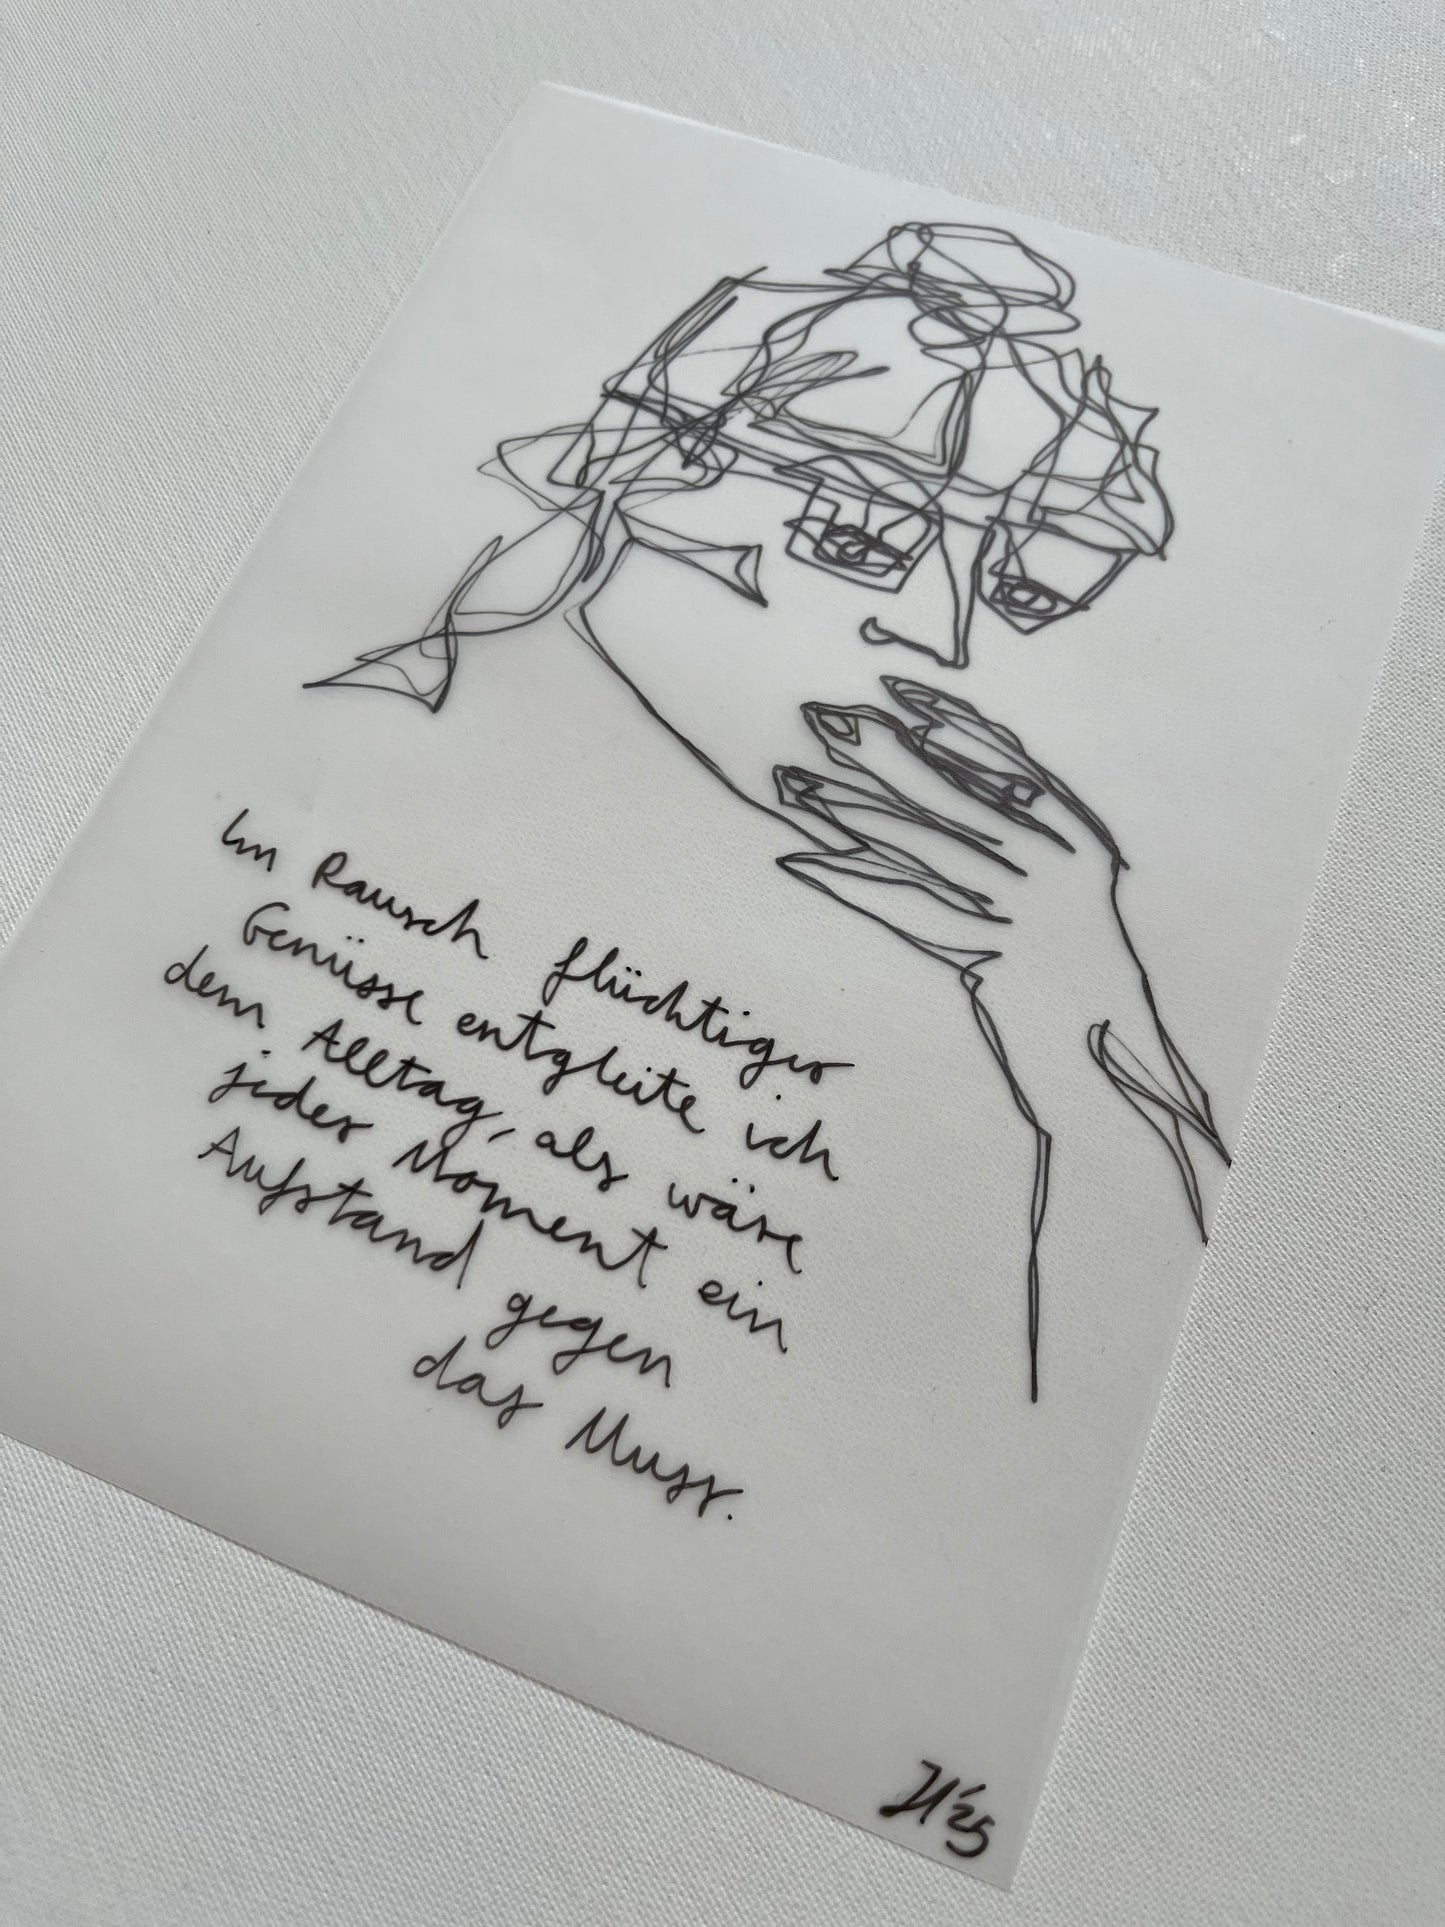 Im Rausch flüchtiger
Genüsse entgleite ich
dem Alltag, als wäre
jeder Moment ein
Aufstand gegen
das Muss.
JH'25